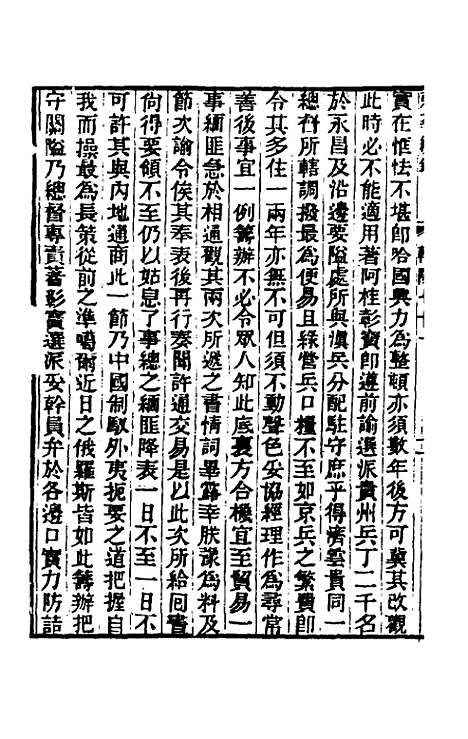 實在怯怯不堪即哈國興力為整頓亦須數年後方可冀其改觀
此時必不能適用著阿桂彰寶即遵前諭選派貴州兵丁二千名
於永昌及沿邊要隘處所與滇兵分配駐守庶乎得濟雲貴同一
總督所轄調撥最為便易且綠營兵口糧不至如京兵之繁費即
令其多住一兩年亦無不可但須不動聲色妥協經理作為尋常
善後事宜一例籌辦不必令眾人知此底裏方合機宜至貿易一
事緬匪急於相通觀其兩次所遞之書情詞畢露幸朕豫為料及
節次諭令俟其奉表後再行奏聞許通交易是以此次所給回書
尚得要領不至仍以姑息了事總之緬匪降表一日不至一日不
可許其與內地通商此一節乃中國制馭外夷扼要之道把握自
我而操最為長策從前之準噶爾近日之俄羅斯皆如此籌辦把
守關隘乃總督專責著彰寶選派妥幹員弁於各邊口實力防詰